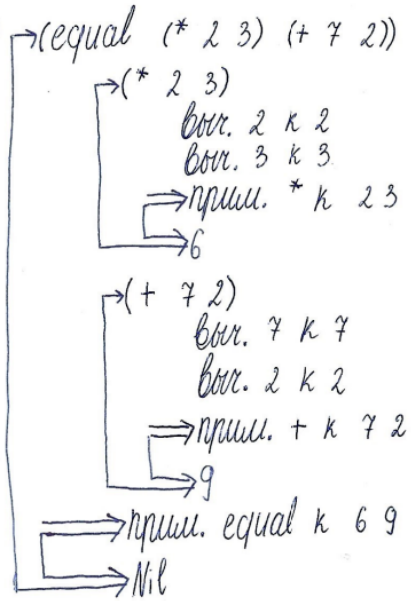 (equal (* 2 3) (+ 7 2))
(* 2 3)
выч. 2 к 2
выч. 3 к 3
прим. * к 2 3
6
(+ 7 2)
выч. 7 к 7
выч. 2 к 2
прим. + к 7 2
9
прим. equal к 6 9
Nil